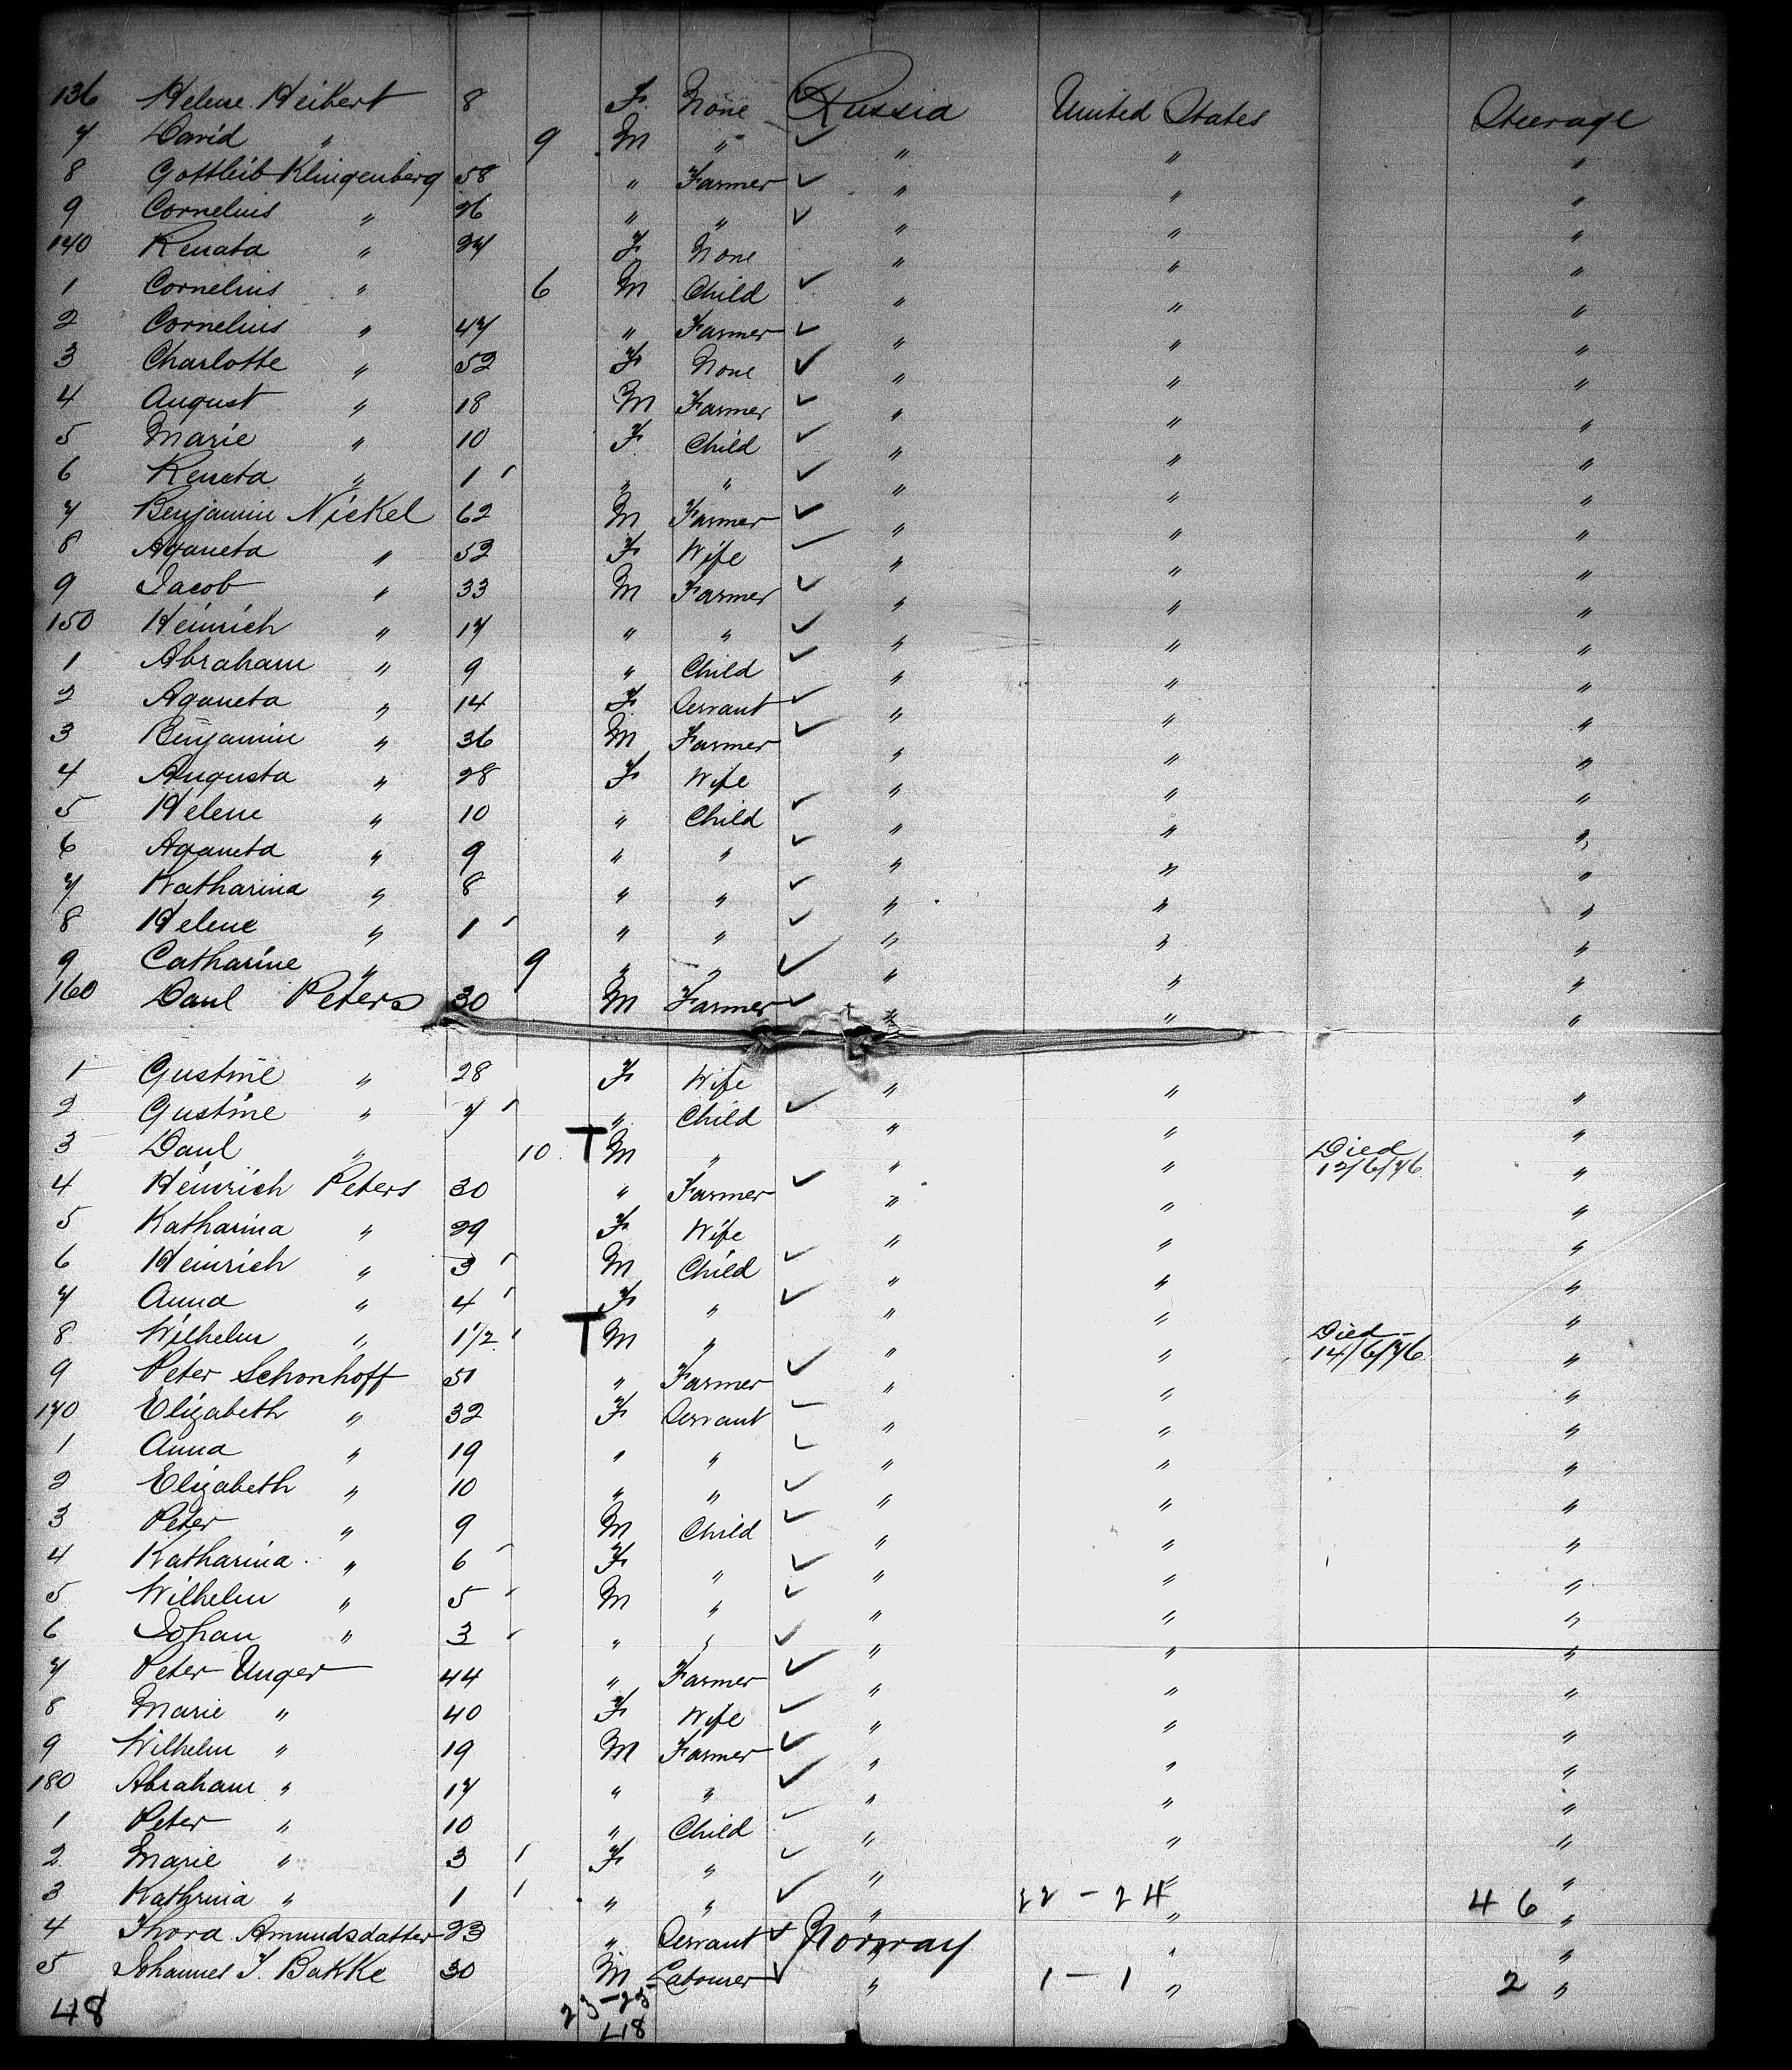 136 Helene Heibert 8 F. None Russia United States Steerage
7 David " 9 M " " " "
8 Gottleib Klingenberg 58 " Farmer " " "
9 Cornelius " 26 " " " " "
140 Renata " 24 F None " " "
1 Cornelius " 6 M Child " " "
2 Cornelius " 47 " Farmer " " "
3 Charlotte " 52 F None " " "
4 August " 18 M Farmer " " "
5 Marie " 10 F. Child " " "
6 Renata " 1 " " " " "
7 Benjamin Nickel 62 M Farmer " " "
8 Aganeta " 52 F Wife " " "
9 Jacob " 33 M Farmer " " "
150 Heinrich " 17 " " " " "
1 Abraham " 9 " Child " " "
2 Aganeta " 14 F Servant " " "
3 Benjamin " 36 M Farmer " " "
4 Augusta " 28 F Wife " " "
5 Helene " 10 " Child " " "
6 Aganeta " 9 " " " " "
7 Katharina " 8 " " " " "
8 Helene " 1 " " " " "
9 Catharine " 9 " " " " "
160 Paul Peters 30 M Farmer " " "
1 Gustine " 28 F Wife " " "
2 Gustine " 7 " Child " " "
3 Paul " 10 T M " " " Died 12/6/76 "
4 Heinrich Peters 30 " Farmer " " "
5 Katharina " 29 F Wife " " "
6 Heinrich " 3 M Child " " "
7 Anna " 4 F " " " "
8 Wilhelm " 1 1/2 T M " " " Died 14/6/76 "
9 Peter Schonhoff 51 " Farmer " " "
170 Elizabeth " 32 F Servant " " "
1 Anna " 19 " " " " "
2 Elizabeth " 10 " " " " "
3 Peter " 9 M Child " " "
4 Katharina " 6 F " " " "
5 Wilhelm " 5 M " " " "
6 Johan " 3 " " " " "
7 Peter Unger 44 " Farmer " " "
8 Marie " 40 F Wife " " "
9 Wilhelm " 19 M Farmer " " "
180 Abraham " 17 " " " " "
1 Peter " 10 " Child " " "
2 Marie " 3 F " " " "
3 Kathrina " 1 " " " 22 - 24 " 46 "
4 Thora Amundsdatter 23 " Servant Norway " "
5 Johannes T. Bakke 30 M Labourer " 1 - 1 " 2 "
48 23 - 25
48